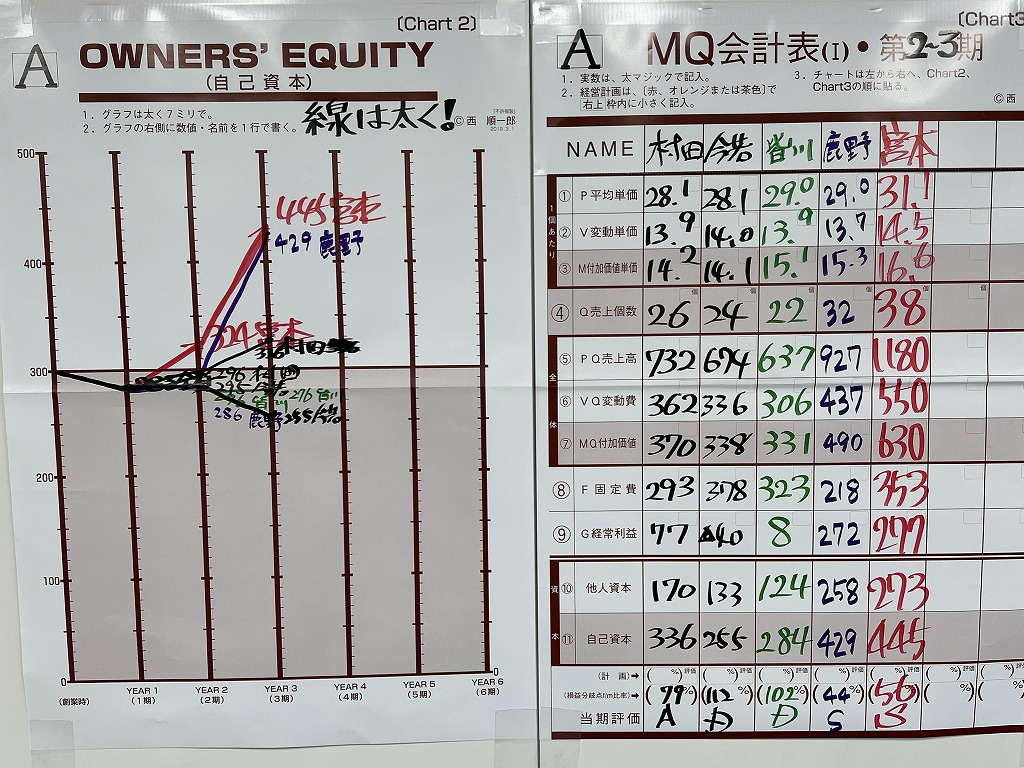 〔Chart 2〕
A
OWNERS' EQUITY
(自己資本)
1．グラフは太く7ミリで。
2．グラフの右側に数値・名前を1行で書く。
線は太く!
〔不許複製〕
© 西 順一郎
2019.3.1
500
400
300
200
100
0
0
445 宮本
429 鹿野
324 宮本
336 村田
296 村田
295 今岩
276 皆川
286 鹿野 255 今岩
(創業時)
YEAR 1 (1期)
YEAR 2 (2期)
YEAR 3 (3期)
YEAR 4 (4期)
YEAR 5 (5期)
YEAR 6 (6期)
〔Chart3
A
MQ会計表(I)・第2~3期
1．実数は、太マジックで記入。
2．経営計画は、〔赤、オレンジまたは茶色〕で
右上 枠内に小さく記入。
3．チャートは左から右へ、Chart2、
Chart3の順に貼る。
© 西
NAME 村田 今岩 皆川 鹿野 宮本
1個あたり
① P 平均単価 28.1 28.1 29.0 29.0 31.1
② V 変動単価 13.9 14.0 13.9 13.7 14.5
③ M付加価値単価 14.2 14.1 15.1 15.3 16.6
④ Q 売上個数 26 24 22 32 38
個 個 個 個 個 個 個
全体
⑤ PQ 売上高 732 674 637 927 1180
⑥ VQ 変動費 362 336 306 437 550
⑦ MQ 付加価値 370 338 331 490 630
⑧ F 固定費 293 378 323 218 353
⑨ G 経常利益 77 ▲40 8 272 277
資本
⑩ 他人資本 170 133 124 258 273
⑪ 自己資本 336 255 284 429 445
(計 画)→ ( %)評価 ( %)評価 ( %)評価 ( %)評価 ( %)評価 ( %)評価 ( %)評価
(損益分岐点f/m比率)→ (79%) (112%) (102%) (44%) (56%) ( %) (
当期評価 A D D S S